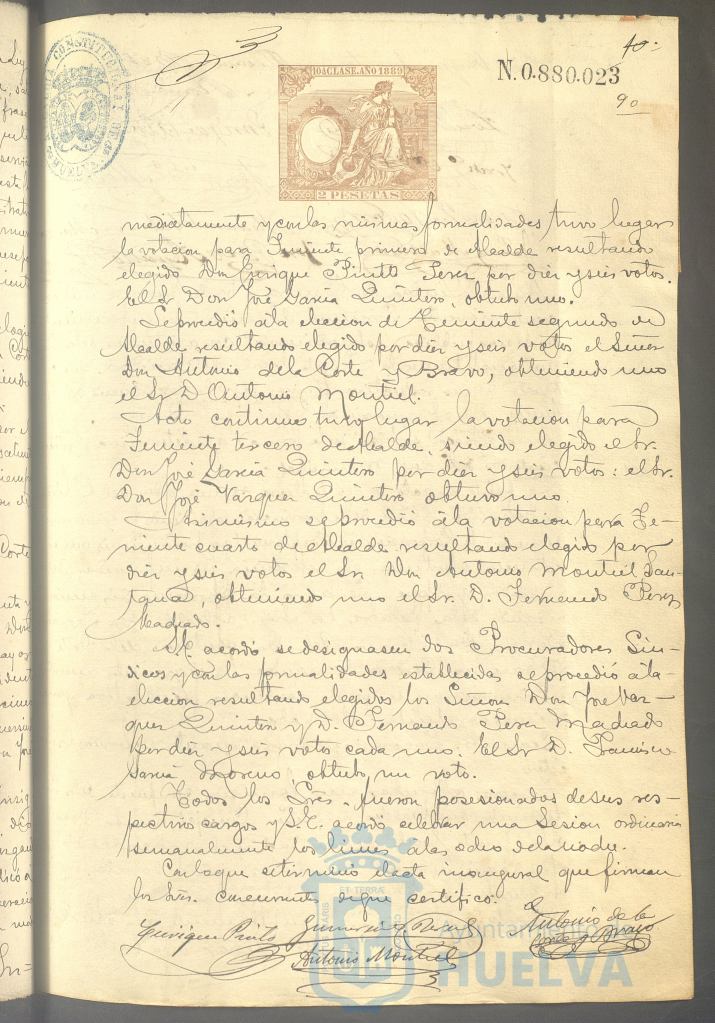 3
40.
N. 0.880.023
90
ALCALDIA CONSTITUCIONAL DE HUELVA
10ª CLASE. AÑO 1889
2 PESETAS
mediatamente y con las mismas formalidades tuvo lugar
la votacion para Teniente primero de Alcalde resultando
elegido Don Enrique Pinto Perez por diez y seis votos.
El Sr Don José Garcia Quintero, obtubo uno.
Se procedió á la eleccion de Teniente segundo de
Alcalde resultando elegido por diez y seis votos el Señor
Don Antonio de la Corte y Bravo, obteniendo uno
el Sr D Antonio Montiel.
Acto continuo tuvo lugar la votacion para
Teniente tercero de Alcalde, siendo elegido el Sr.
Don José Garcia Quintero por diez y seis votos: el Sr.
Don José Vazquez Quintero obtuvo uno.
Asimismo se procedió á la votacion para Te-
niente cuarto de Alcalde resultando elegido por
diez y seis votos el Sr. Don Antonio Montiel San-
tana, obteniendo uno el Sr. D. Fernando Perez
Machado.
S.E. acordó se designasen dos Procuradores Sin-
dicos y con las formalidades establecidas se procedió á la
eleccion resultando elegidos los Señores Don José Vaz-
quez Quintero y D. Fernando Perez Machado
por diez y seis votos cada uno. El Sr D. Francisco
Garcia Moreno, obtubo un voto.
Todos los Sres. fueron posesionados de sus res-
pectivos cargos y S.E. acordó celebrar una Sesion ordinaria
semanalmente los lunes a las ocho de la noche.
Con lo que se terminó el acta inaugural que firman
los Sres. concurrentes de que certifico.
Enrique Pinto
Antonio de la
Corte y Bravo
Antonio Montiel
Ayuntamiento de
HUELVA